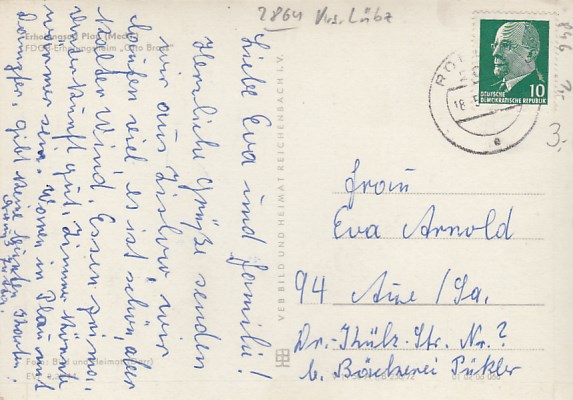 2864 Krs. Lübz
Erholungsort Plau (Meckl)
FDGB-Erholungsheim
Liebe Eva und Familie!
Herzliche Grüße senden
wir aus
laufen viel es ist schön, aber
kalter Wind. Essen prima,
Unterkunft gut, Zimmer könnte
wärmer sein. Waren in Plau mit
Dampfer, gibt keine bunten Karten
VEB BILD UND HEIMAT REICHENBACH I. V.
DEUTSCHE
DEMOKRATISCHE REPUBLIK
10
18.
3,-
Frau
Eva Arnold
94 Aue/Sa.
Dr.-Külz-Str. Nr.?
b. Bäckerei Pükler
Foto: Bild und Heimat